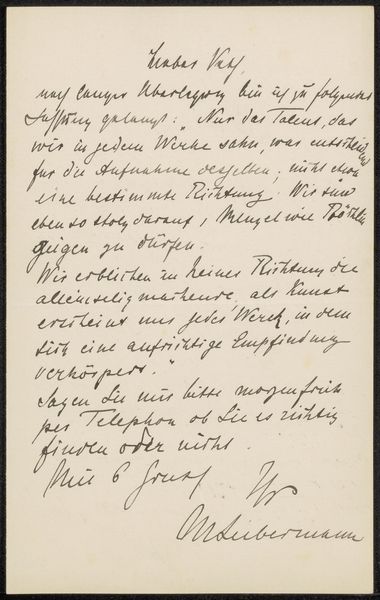 Lieber Veth,
nach langer Überlegung bin ich zu folgender
Fassung gelangt: "Nur das Talent, das
wir in jedem Werke sehn, war entscheidend
für die Aufnahme desselben, nicht etwa
eine bestimmte Richtung. Wir sind
ebenso stolz darauf, Menzel wie Böcklin
zeigen zu dürfen.
Wir erblicken in keiner Richtung die
alleinseligmachende, als Kunst
erscheint uns jedes Werk, in dem
sich eine aufrichtige Empfindung
verkörpert."
Sagen Sie mir bitte morgen früh
per Telephon ob Sie es richtig
finden oder nicht.
Mit b Gruß Ihr
MLiebermann